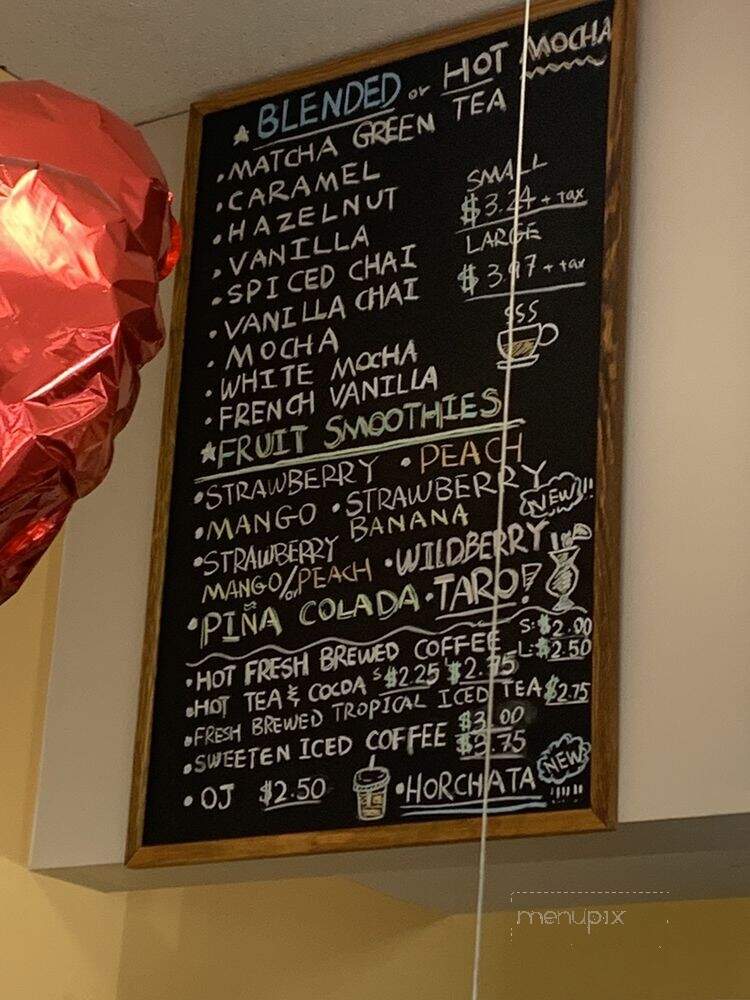 ★ BLENDED or HOT MOCHA
• MATCHA GREEN TEA
• CARAMEL
• HAZELNUT
• VANILLA
• SPICED CHAI
• VANILLA CHAI
• MOCHA
• WHITE MOCHA
• FRENCH VANILLA
SMALL
$3.24 + tax
LARGE
$3.97 + tax
★ FRUIT SMOOTHIES
• STRAWBERRY • PEACH
• MANGO • STRAWBERRY BANANA
NEW!!
• STRAWBERRY MANGO/or PEACH • WILDBERRY
• PIÑA COLADA • TARO!
• HOT FRESH BREWED COFFEE S: $2.00 L: $2.50
• HOT TEA & COCOA S $2.25 L $2.75
• FRESH BREWED TROPICAL ICED TEA $2.75
• SWEETEN ICED COFFEE $3.00 $3.75
• OJ $2.50 • HORCHATA NEW !!!!!
menupix